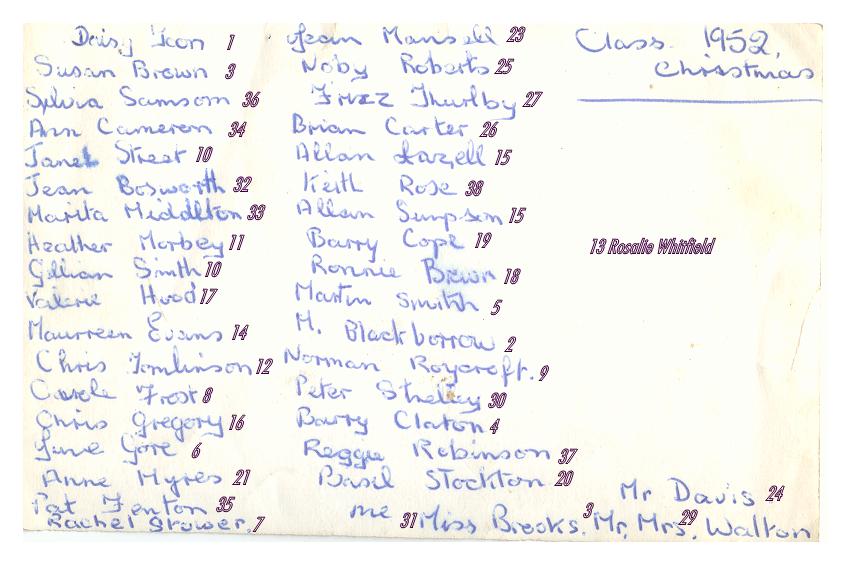 Daisy Icon 1
Susan Brown 3
Sylvia Samsom 36
Ann Cameron 34
Janet Street 10
Jean Bosworth 32
Marita Middlton 33
Heather Morbey 11
Gillian Smith 10
Valerie Hood 17
Maurreen Evans 14
Chris Tomlinson 12
Carole Frost 8
Chris Gregory 16
June Gore 6
Anne Myres 21
Pat Fenton 35
Rachel Stower. 7
Jean Mansell 23
Noby Roberts 25
Thurlby 27
Brian Carter 26
Allan Lazell 15
Keith Rose 38
Allan Simpson 15
Barry Cope 19
Ronnie Brown 18
Martin Smith 5
M. Blackborrow 2
Norman Roycroft. 9
Peter 30
Barry Claton 4
Reggie Robinson 37
Basil Stockton 20
me 31
Miss Brooks. 3 Mr, Mrs. 29 Walton
Class. 1952.
Christmas
13 Rosalie Whitfield
Mr Davis 24